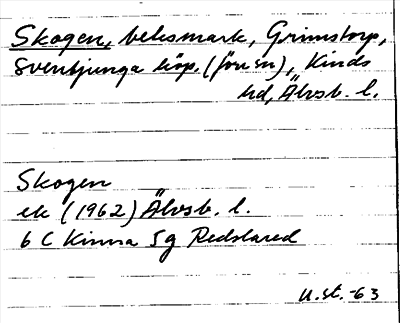 Skogen, bebsmark, Grimstorp,
Svenljunga köp. (förr sn), Kinds
hd, Älvsb. l.
Skogen
ek (1962) Älvsb. l.
6 C Kinna 5 g Redslared
U.st.-63